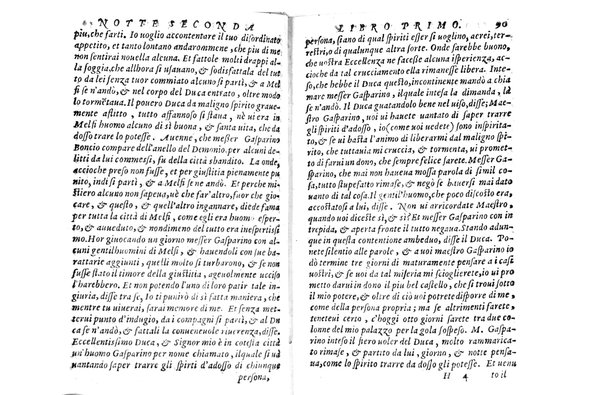 NOTTE SECONDA
piu, che farti. Io uoglio accontentare il tuo disordinato
appetito, et tanto lontano andarommene, che piu di me
non sentirai nouella alcuna. Et fattole molti drappi al-
la foggia, che allhora si usauano, & sodisfatala del tut-
to da lei senza tuor commiato alcuno si partì, & a Mel
fi se n'andò, & nel corpo del Duca entrato, oltre modo
lo tormẽtaua. Il pouero Duca da maligno spirito graue-
mente aflitto, tutto affannoso si staua, nè ui era in
Melfi huomo alcuno di sì buona, & santa uita, che da
dosso trare lo potesse. Auenne, che messer Gasparino
Boncio compare dell'anello del Demonio, per alcuni de-
litti da lui commessi, fu della città sbandito. La onde,
accioche preso non fusse, et per giustitia pienamente pu
nito, indi partì, & a Melfi se ne andò. Et perche mi-
stiero alcuno non sapeua, nè che far'altro, fuor che gio-
care, & questo, & quell'altro ingannare, diede fama
per tutta la città di Melfi, come egli era huomo esper-
to, & aueduto, & nondimeno del tutto era inespertissi
mo. Hor giuocando un giorno messer Gasparino con al-
cuni gentil'huomini di Melfi, & hauendoli con sue ba-
rattarie aggiunti, quelli molto si turbarono, & se non
fusse stato il timore della giustitia, ageuolmente ucciso
l'harebbero. Et non potendo l'uno di loro patir tale in-
giuria, disse tra se, Io ti punirò di sì fatta maniera, che
mentre tu uiuerai, sarai memore di me. Et senza met-
terui punto d'indugio, da i compagni si partì, & al Du
ca se n'andò, & fattali la conueneuole riuerenza, disse.
Eccellentissimo Duca, & Signor mio è in cotesta città
un'huomo Gasparino per nome chiamato, ilquale si uà
uantando saper trarre gli spirti d'adosso di chiunque
persona,
LIBRO PRIMO. 90
persona, siano di qual spiriti esser si uoglino, aerei, ter-
restri, o di qualunque altra sorte. Onde sarebbe buono,
che uostra Eccellenza ne facesse alcuna isperienza, ac-
cioche da tal cruciamento ella rimanesse libera. Inte-
so, che hebbe il Duca questo, incontinente mandò a chia
mare messer Gasparino, ilquale intesa la dimanda, là
se n'andò. Il Duca guatandolo bene nel uiso, disse; Mae
stro Gasparino, uoi ui hauete uantato di saper trarre
gli spiriti d'adosso, io (come uoi uedete) sono inspirita-
to, & se ui basta l'animo di liberarmi dal maligno spi-
rito, che tuttauia mi cruccia, & tormenta, ui prometto
di farui un dono, che sempre felice sarete. Messer Gas-
parino, che mai non haueua mossa parola di simil co-
sa, tutto stupefatto rimase, & negò se hauersi mai da-
to uanto di tal cosa. Il gentil'huomo, che poco discosto era,
accostatosi a lui, disse. Non ui arricordate Maestro,
quando uoi diceste sì, & sì? Et messer Gasparino con in-
trepida, & aperta fronte il tutto negaua. Stando adun-
que in questa contentione ambeduo, disse il Duca. Po-
nete silentio alle parole, & a uoi maestro Gasparino io
dò termine tre giorni di maturamente pensare a i casi
uostri, & se uoi da tal miseria mi sciogliereте, io ui pro
metto darui in dono il piu bel castello, che si troui sotto
il mio potere, & oltre di ciò uoi potrete disporre di me,
come della persona propria; ma se altrimenti farete,
tenetiui certo, c'hoggi otto giorni sarete tra due co-
lonne del mio palazzo per la gola sospeso. M. Gaspa-
rino inteso il fiero uoler del Duca, molto rammarica-
to rimase, & partito da lui, giorno, & notte pensa-
ua, come lo spirito trarre da dosso gli potesse. Et uenu
H 4 to il